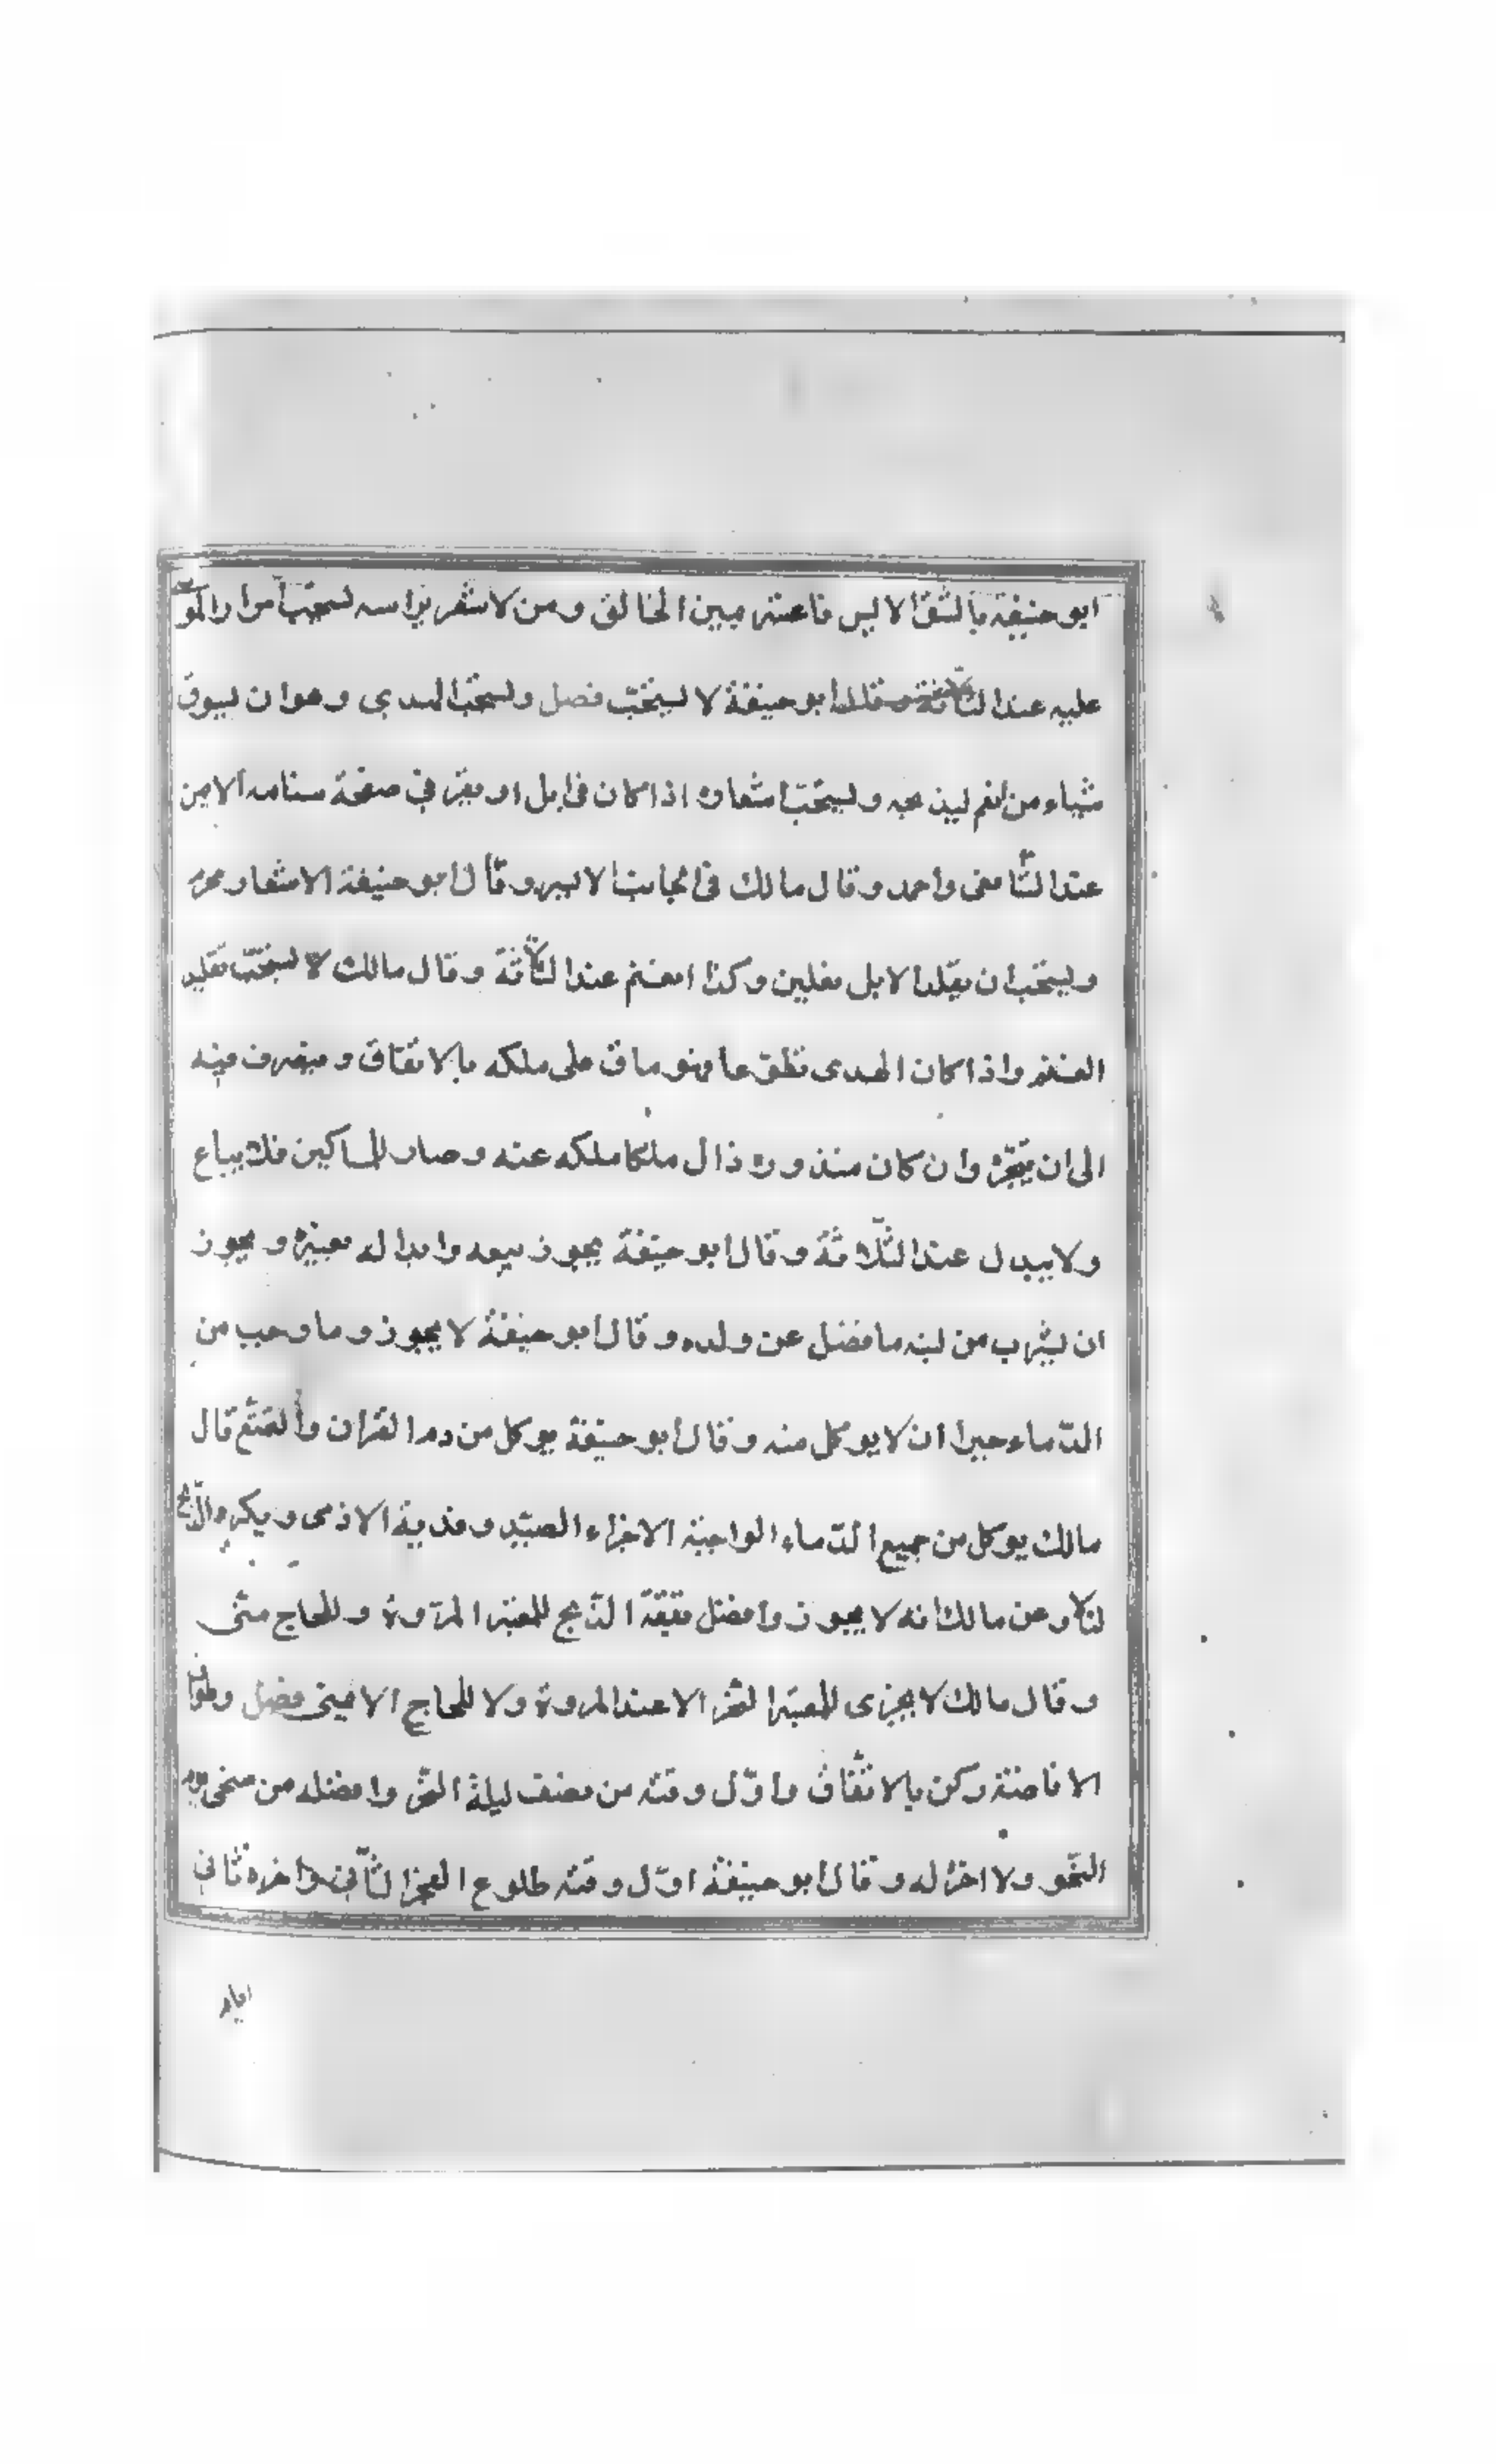 ابو حنيفة بالشق الايسر فاعتبر يمين الحالق ومن لا شعر براسه يستحب امرار الموسى
عليه عند الثلاثة وقال ابو حنيفة لا يستحب فصل ويستحب الهدى وهو ان يسوق
شياء من انعم ليذبحه ويستحب اشعاره اذا كان فى ابل او بقر فى صفحة سنامه الايمن
عند الشافعى واحمد وقال مالك فى الجانب الايسر وقال ابو حنيفة الاشعار محرم
ويستحب ان يقلد الابل نعلين وكذا الغنم عند الثلاثة وقال مالك لا يستحب تقليد
الغنم واذا كان الهدى تطوعا فهو باق على ملكه بالاتفاق ويتصرف فيه
الى ان ينحره وان كان منذوره زال ملكه عنه وصار للمساكين فلا يباع
ولا يبدل عند الثلاثة وقال ابو حنيفة يجوز بيعه وابداله بغيره ويجوز
ان يشرب من لبنه ما فضل عن ولده وقال ابو حنيفة لا يجوز وما وجب من
الدماء جبرا ان لا يوكل منه وقال ابو حنيفة يوكل من دم القران والتمتع قال
مالك يوكل من جميع الدماء الواجبة الا جزاء الصيد وفدية الاذى ويكره الذبح
ليلا وعن مالك انه لا يجوز وافضل بقعة الذبح للمعتمر المروة وللحاج منى
وقال مالك لا يجزى للمعتمر النحر الا عند المروة ولا للحاج الا بمنى فصل وطواف
الافاضة ركن بالاتفاق واول وقته من نصف ليلة النحر وافضله من ضحى يوم
النحر ولا اخر له وقال ابو حنيفة اول وقته طلوع الفجر الثانى واخره ثانى
ايام